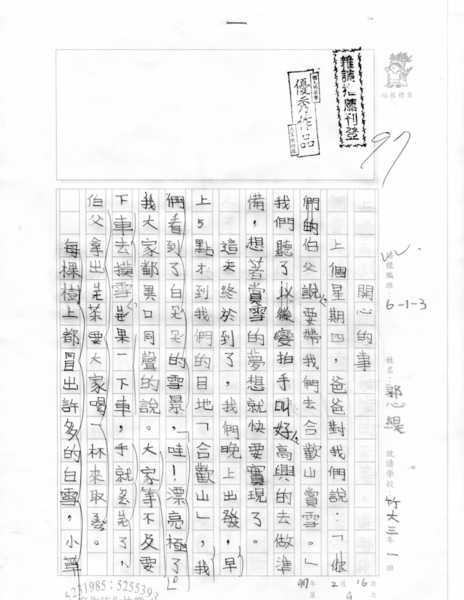 雜誌推薦刊登
優秀作品
97
6-1-3
姓名
就讀學校
竹大三年一班
開心的事
上個星期四，爸爸對我們說：「你
們的伯父說要帶我們去合歡山賞雪。」
我們聽了以後變拍手叫好，高興的去做準
備，想著賞雪的夢想就快要實現了。
這天終於到了，我們晚上出發，早
上5點才到我們的目地「合歡山」，我
們看到了白白的雪景，「哇！漂亮極了」
我大家都異口同聲的說。大家等不及要
下車去摸雪，結果一下車，手就
伯父拿出 茶要大家喝一杯來取暖。
每棵樹上都冒出許多的白雪，小草
97年2月16日